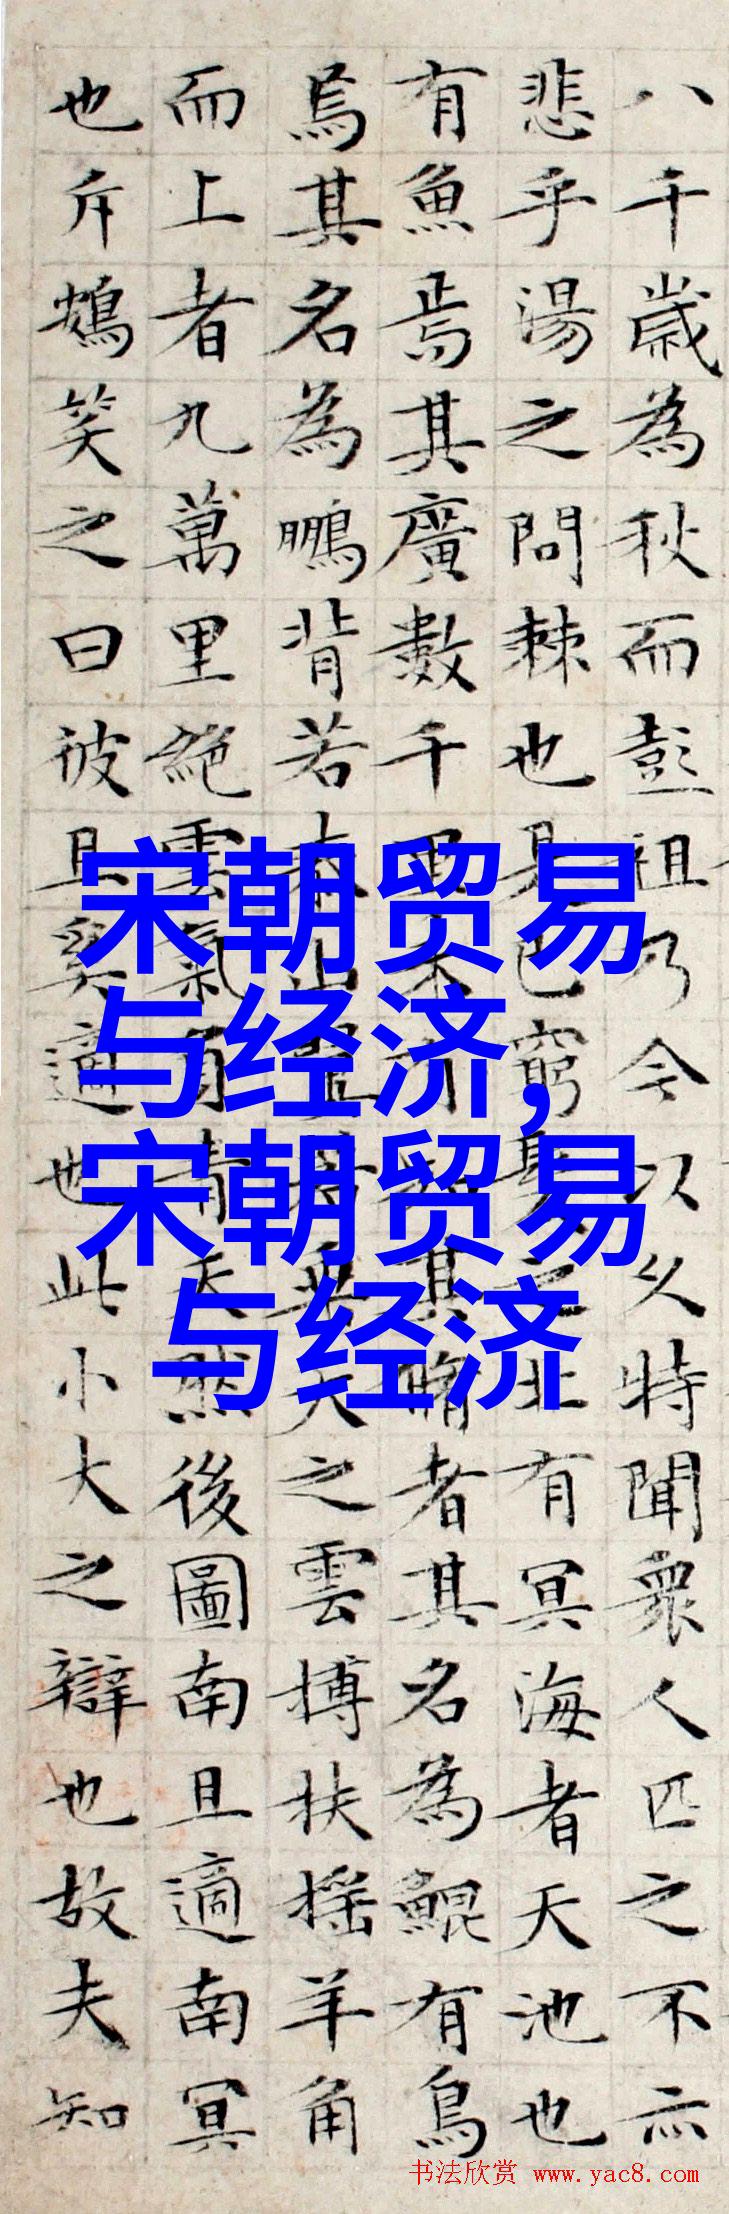 八千歲為秋而彭祖乃今以久特聞眾人匹之不亦
悲乎湯之問棘也是已窮髮之北有冥海者天池也
有魚焉其廣數千里未有知其脩者其名為鯤有鳥
焉其名為鵬背若泰山翼若垂天之雲搏扶搖羊角
而上者九萬里絕雲氣負青天然後圖南且適南冥
也斥鴳笑之曰彼且奚適也此小大之辯也故夫知
宋朝贸易
与经济,
宋朝贸易
与经济
书法欣赏 www.yac8.com